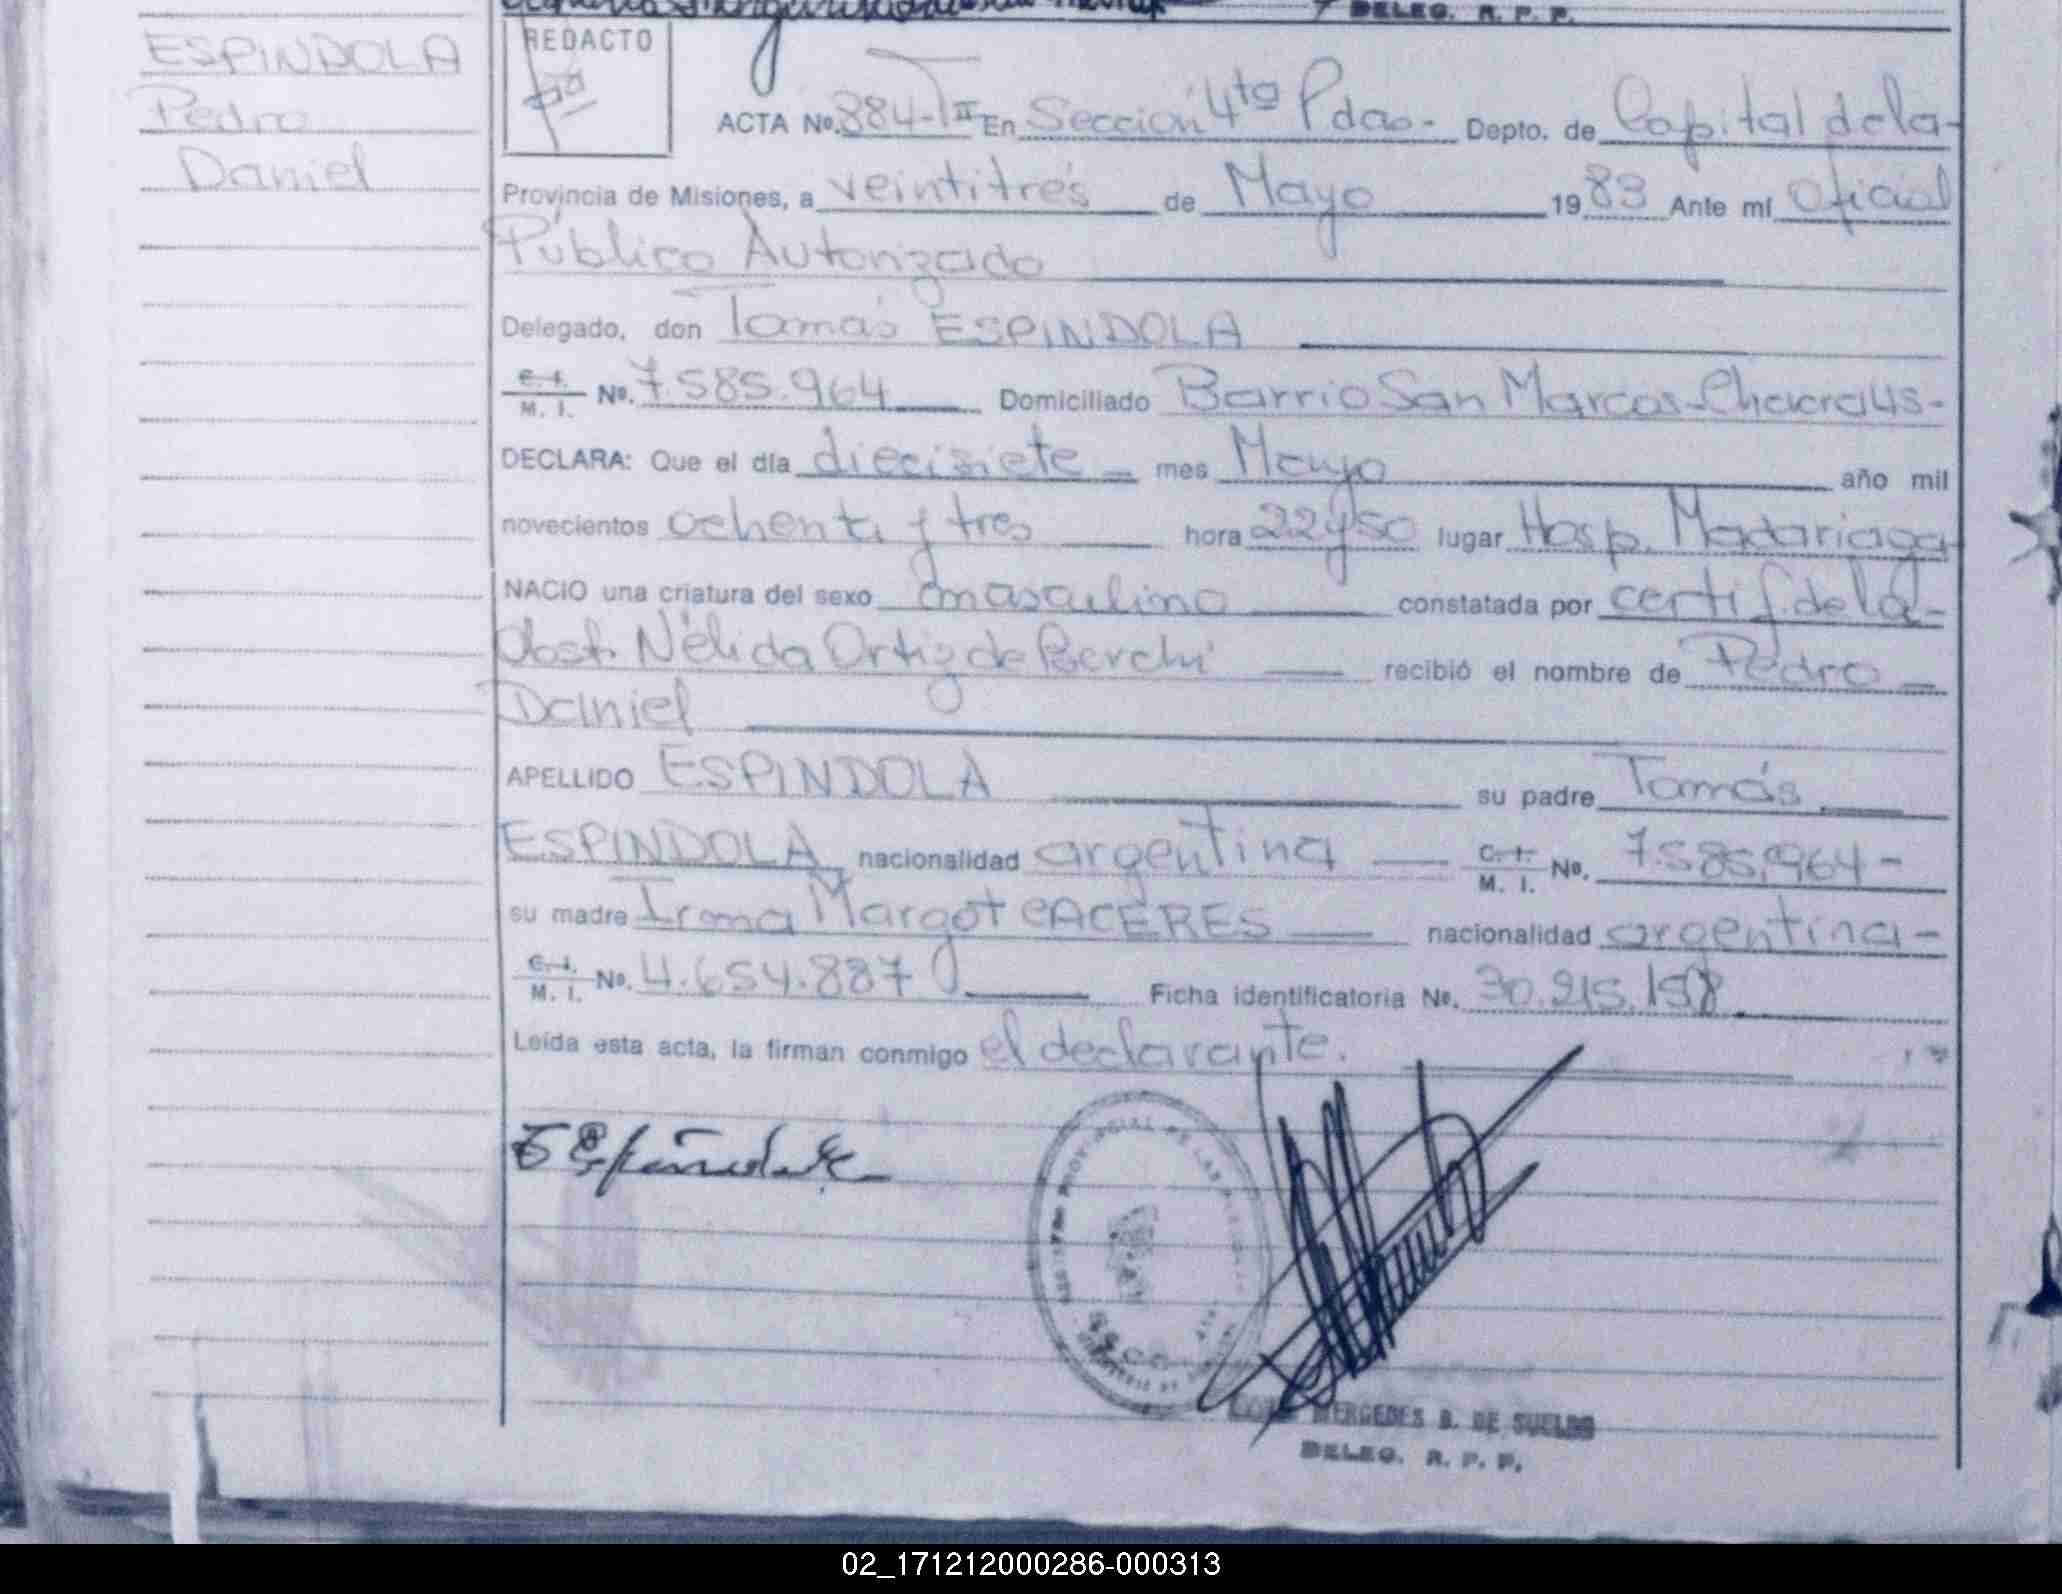 ESPINDOLA
Pedro
Daniel
DELEG. R. P. P.
REDACTO
ACTA Nº. 884-TII En Sección 4to Pdas - Depto. de Capital de la-
Provincia de Misiones, a veintitrés de Mayo 1983 Ante mí Oficial
Público Autorizado
Delegado, don Tomás ESPINDOLA
C. I. M. I. Nº. 7.585.964 Domiciliado Barrio San Marcos-Chacra 45-
DECLARA: Que el día diecisiete - mes Mayo año mil
novecientos ochenta y tres hora 22y50 lugar Hosp. Madariaga
NACIO una criatura del sexo masculino constatada por certif. de la-
Obst. Nélida Ortiz de recibió el nombre de Pedro
Daniel
APELLIDO ESPINDOLA su padre Tomás
ESPINDOLA nacionalidad argentina C. I. M. I. Nº. 7.585.964-
su madre Irma Margot CACERES nacionalidad argentina-
C. I. M. I. Nº. 4.654.887 Ficha identificatoria Nº. 30.215.158
Leída esta acta, la firman conmigo el declarante.
MERCEDES B. DE SUELDO
DELEG. R. P. P.
02_171212000286-000313